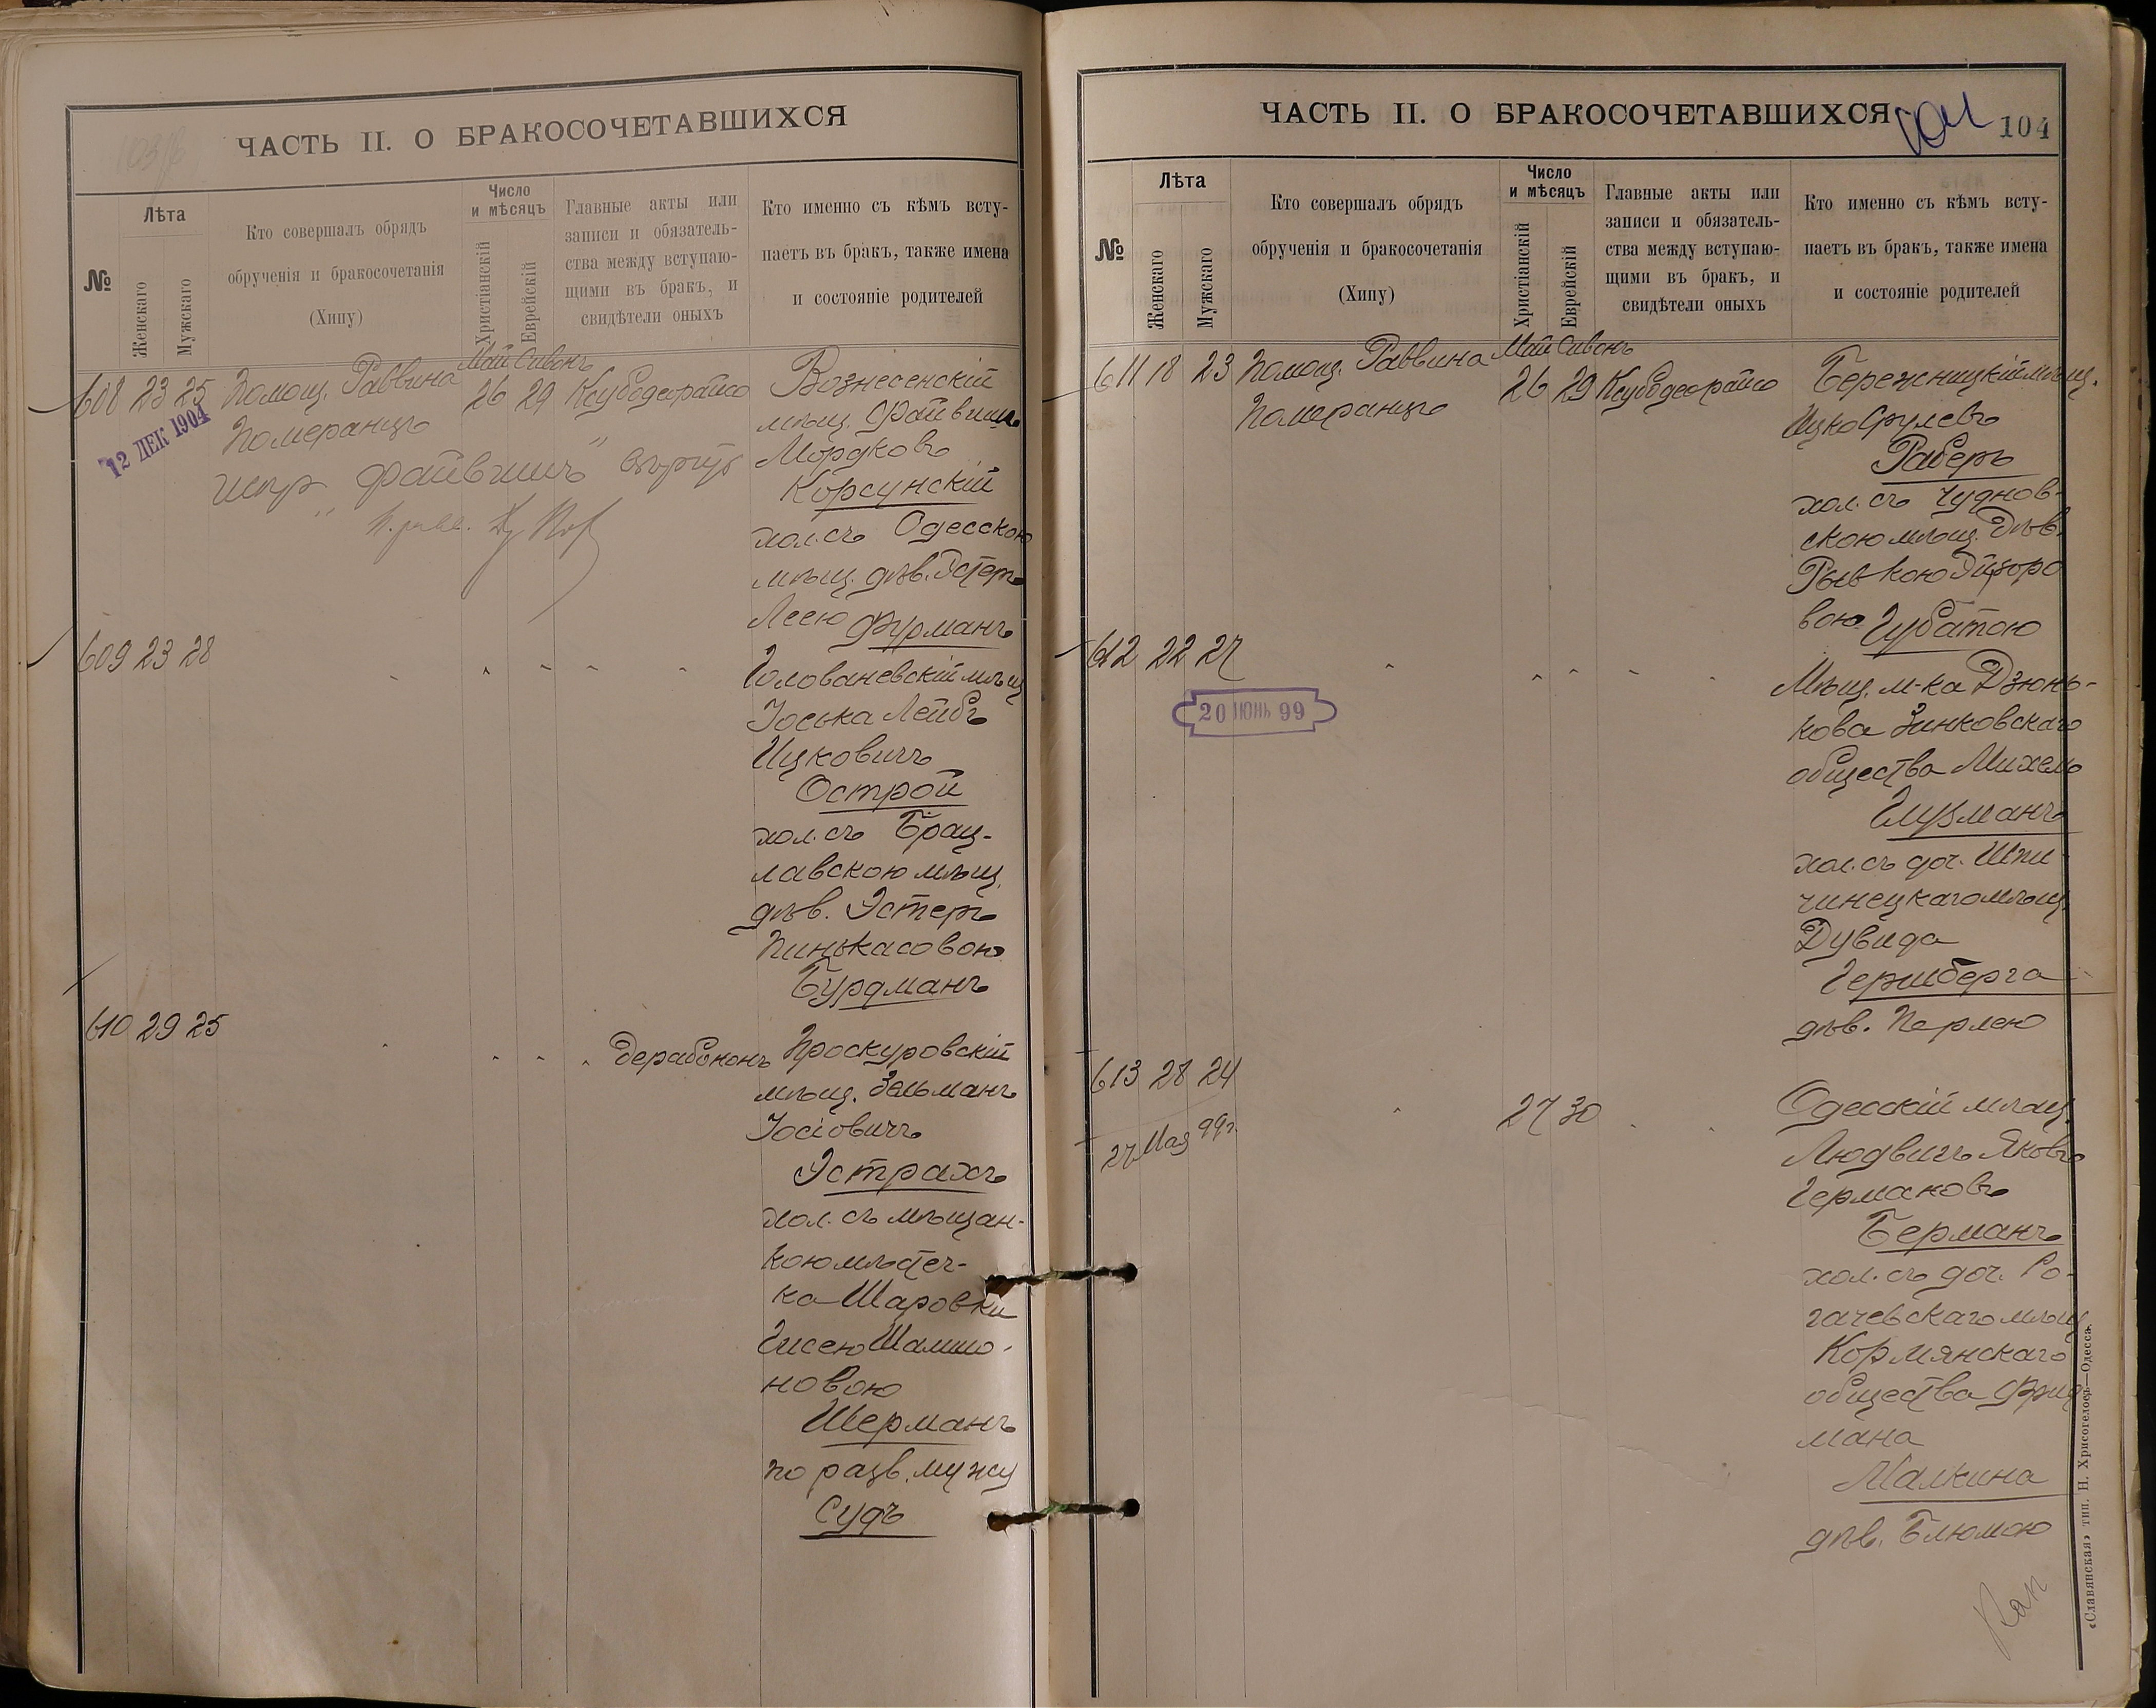 ЧАСТЬ II. О БРАКОСОЧЕТАВШИХСЯ
№
Лѣта
Женскаго
Мужскаго
Кто совершалъ обрядъ
обрученія и бракосочетанія
(Хипу)
Число
и мѣсяцъ
Христіанскій
Еврейскій
Главные акты или
записи и обязатель-
ства между вступаю-
щими въ бракъ, и
свидѣтели оныхъ
Кто именно съ кѣмъ всту-
паетъ въ бракъ, также имена
и состояніе родителей
Май Сивонъ
608 23 25 Помощ. Раввина 26 29 Ксубодеорайсо
Померанцъ
12 ДЕК 1904
Вознесенскій
мѣщ. Файвишъ
Мордковъ
Корсунскій
хол. съ Одесскою
мѣщ. дѣв. Эстеръ
Леею Фурманъ
609 23 28
Голованевскій мѣщ
Іоська Лейбъ
Ицковичъ
Острой
хол. съ Брац-
лавскою мѣщ.
дѣв. Эстеръ
Пинькасовою
Бурдманъ
610 29 25
Дерабононъ
Проскуровскій
мѣщ. Зельманъ
Іосіовичъ
Эстрахъ
хол. съ мѣщан-
кою мѣстеч-
ка Шаровки
Гисею Шамшо-
новою
Шерманъ
по разв. мужу
Судъ
ЧАСТЬ II. О БРАКОСОЧЕТАВШИХСЯ
104
№
Лѣта
Женскаго
Мужскаго
Кто совершалъ обрядъ
обрученія и бракосочетанія
(Хипу)
Число
и мѣсяцъ
Христіанскій
Еврейскій
Главные акты или
записи и обязатель-
ства между вступаю-
щими въ бракъ, и
свидѣтели оныхъ
Кто именно съ кѣмъ всту-
паетъ въ бракъ, также имена
и состояніе родителей
Май Сивонъ
611 18 23 Помощ. Раввина 26 29 Ксубодеорайсо
Померанцъ
Бережницкій мѣщ.
Ицко Срулевъ
Раберъ
хол. съ Чуднов-
скою мѣщ. дѣв.
Рывкою
вою Чубатою
612 22 27
20 ІЮНЬ 99
Мѣщ. м-ка Дзюнь-
кова Зинковскаго
общества Михель
Глузманъ
хол. съ доч. Шпи-
чинецкаго мѣщ.
Дувида
Гершберга
дѣв. Перлею
613 28 24
27 30
27 Мая 99 г.
Одесскій мѣщ.
Людвигъ Яковъ
Германовъ
Берманъ
хол. съ доч. Ро-
гачевскаго мѣщ
Кормянскаго
общества Фрид
мана
Малкина
дѣв. Блюмою
«Славянская» тип. Н. Хрисогелосъ—Одесса.